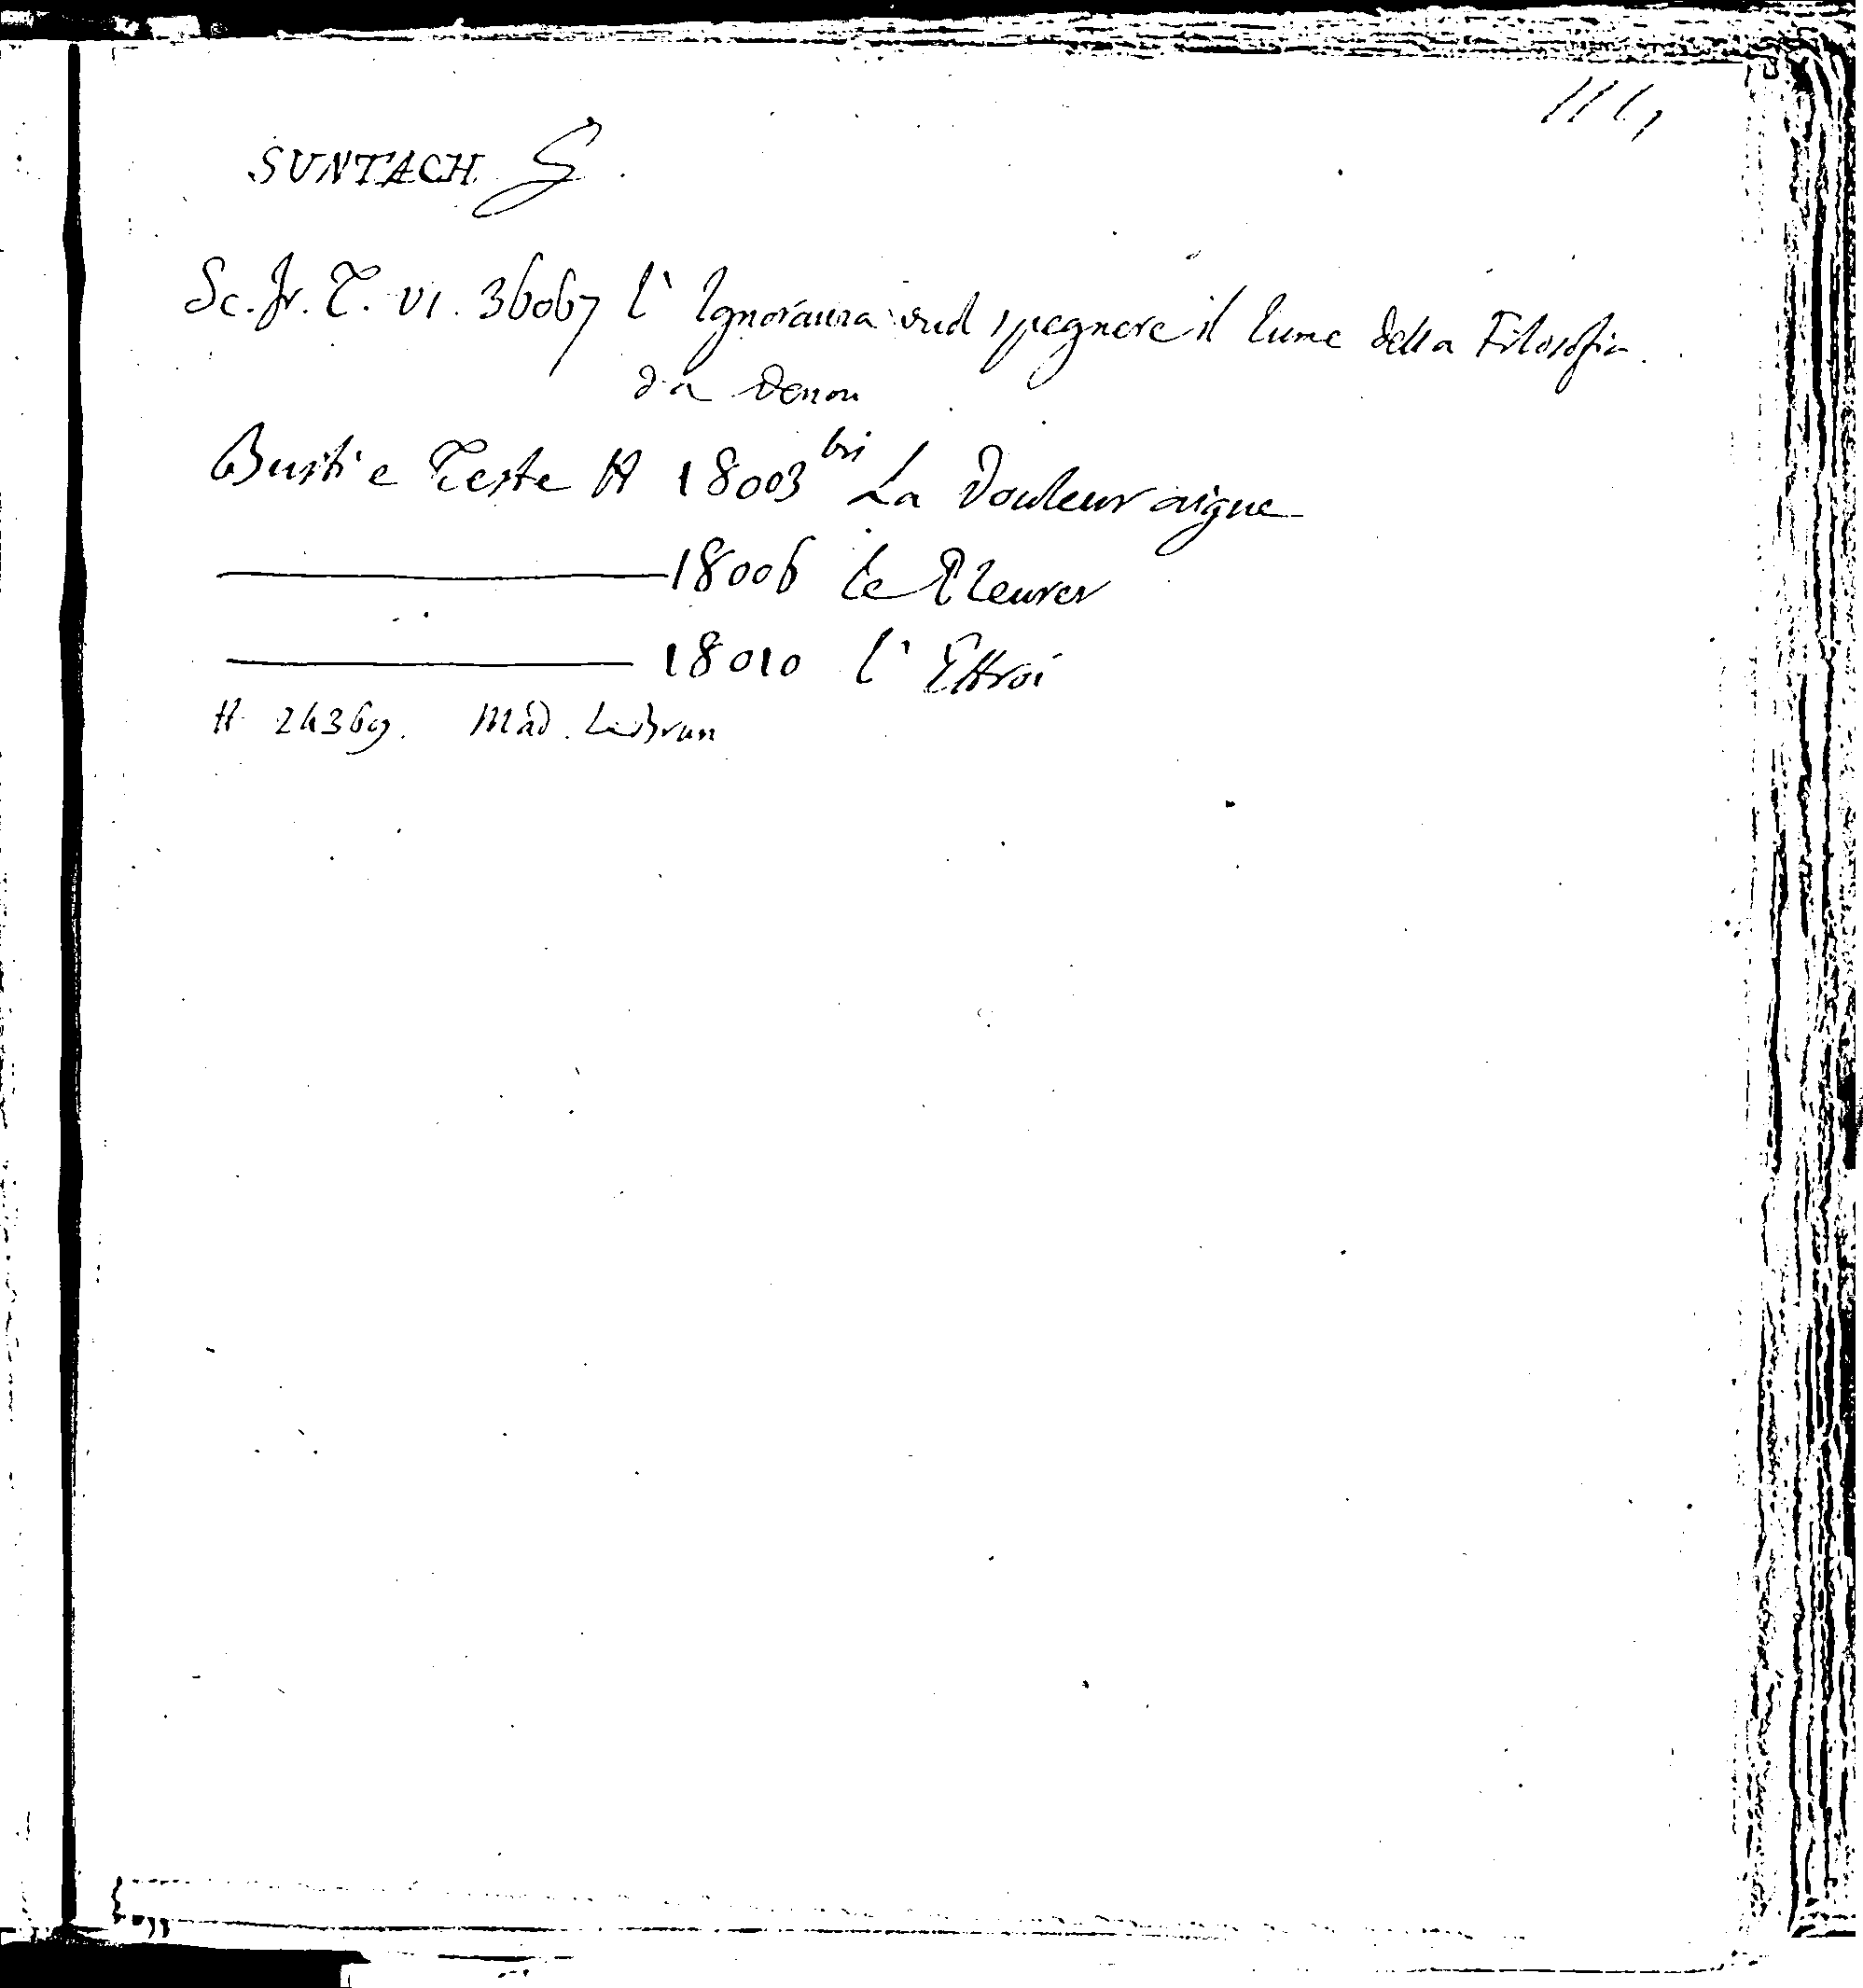 SUNTACH G.
Sc. fr. T. VI. 36067 l'Ignoranza vuol spegnere il lume della Filosofia.
da Denon
Busti e Teste H 18003 bis La Douleur aigue
18006 le Pleurer
18010 l'Effroi
H 24369. Mad. LeBrun